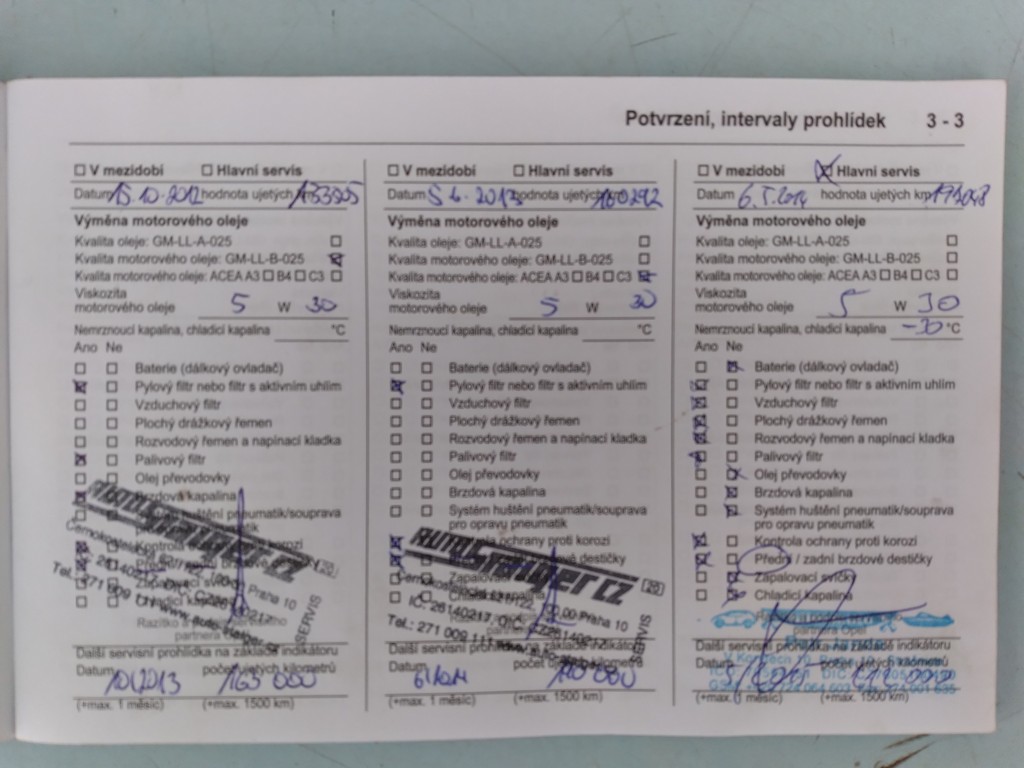 Potvrzení, intervaly prohlídek 3 - 3
V mezidobí Hlavní servis
Datum 15.10.2012 hodnota ujetých 133505
Výměna motorového oleje
Kvalita oleje: GM-LL-A-025
Kvalita motorového oleje: GM-LL-B-025
Kvalita motorového oleje: ACEA A3 B4 C3
Viskozita
motorového oleje 5 W 30
Nemrznoucí kapalina, chladicí kapalina °C
Ano Ne
Baterie (dálkový ovladač)
Pylový filtr nebo filtr s aktivním uhlím
Vzduchový filtr
Plochý drážkový řemen
Rozvodový řemen a napínací kladka
Palivový filtr
Olej převodovky
Brzdová kapalina
huštění pneumatik/souprava
Kontrola korozi
Zapalovací svíčky
Chladicí kapalina
Razítko a
partnera
Další servisní prohlídka na základě indikátoru
Datum 10/2013 počet ujetých kilometrů 163 000
(+max. 1 měsíc) (+max. 1500 km)
V mezidobí Hlavní servis
Datum 2013 hodnota ujetých 160292
Výměna motorového oleje
Kvalita oleje: GM-LL-A-025
Kvalita motorového oleje: GM-LL-B-025
Kvalita motorového oleje: ACEA A3 B4 C3
Viskozita
motorového oleje 5 W 30
Nemrznoucí kapalina, chladicí kapalina °C
Ano Ne
Baterie (dálkový ovladač)
Pylový filtr nebo filtr s aktivním uhlím
Vzduchový filtr
Plochý drážkový řemen
Rozvodový řemen a napínací kladka
Palivový filtr
Olej převodovky
Brzdová kapalina
Systém huštění pneumatik/souprava
pro opravu pneumatik
ochrany proti korozi
brzdové destičky
Praha 10
Tel.: 271 009
SERVIS
Další servisní prohlídka na základě indikátoru
Datum počet ujetých kilometrů
(+max. 1 měsíc) (+max. 1500 km)
V mezidobí Hlavní servis
Datum 6.5.2014 hodnota ujetých km
Výměna motorového oleje
Kvalita oleje: GM-LL-A-025
Kvalita motorového oleje: GM-LL-B-025
Kvalita motorového oleje: ACEA A3 B4 C3
Viskozita
motorového oleje 5 W 30
Nemrznoucí kapalina, chladicí kapalina -30 °C
Ano Ne
Baterie (dálkový ovladač)
Pylový filtr nebo filtr s aktivním uhlím
Vzduchový filtr
Plochý drážkový řemen
Rozvodový řemen a napínací kladka
Palivový filtr
Olej převodovky
Brzdová kapalina
Systém huštění pneumatik/souprava
pro opravu pneumatik
Kontrola ochrany proti korozi
Přední / zadní brzdové destičky
Zapalovací svíčky
Chladicí kapalina
partnera Opel
Další servisní prohlídka na základě indikátoru
Datum počet ujetých kilometrů
(+max. 1 měsíc) (+max. 1500 km)